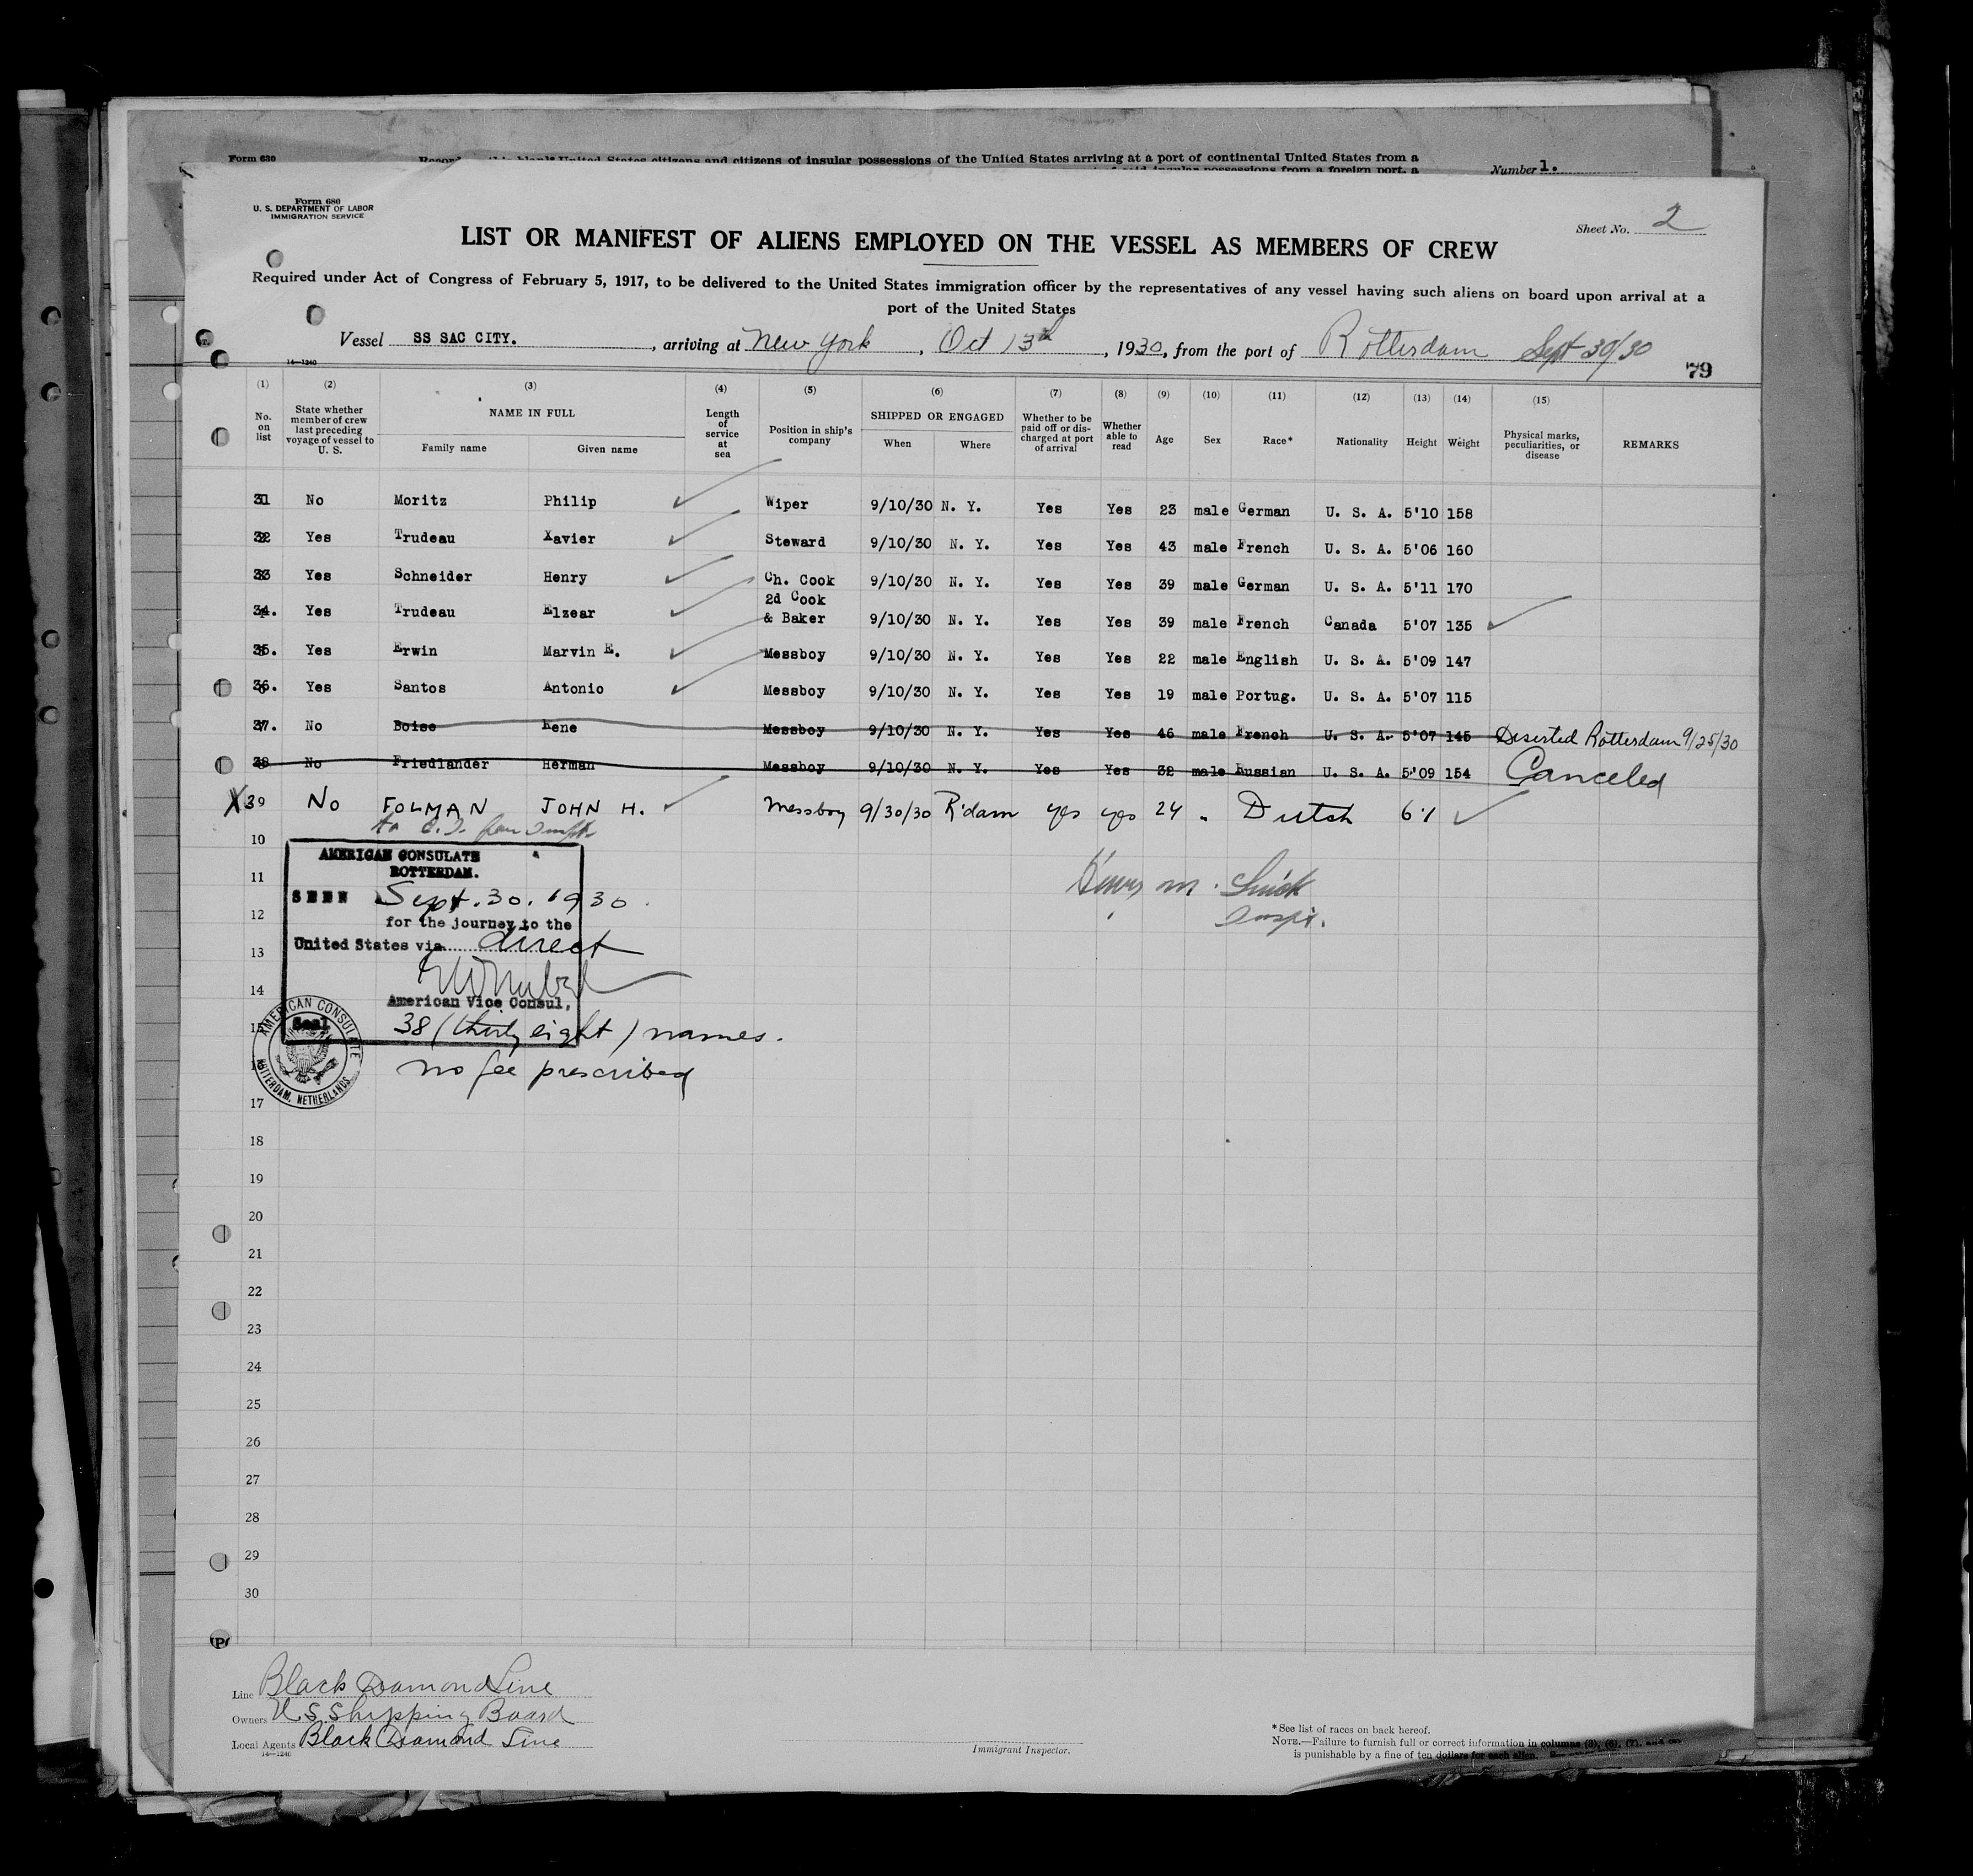 Form 630
blank United States citizens and citizens of insular possessions of the United States arriving at a port of continental United States from a
possessions from a foreign port, a
Number 1.
Form 680
U. S. DEPARTMENT OF LABOR
IMMIGRATION SERVICE
Sheet No. 2
LIST OR MANIFEST OF ALIENS EMPLOYED ON THE VESSEL AS MEMBERS OF CREW
Required under Act of Congress of February 5, 1917, to be delivered to the United States immigration officer by the representatives of any vessel having such aliens on board upon arrival at a
port of the United States
Vessel SS SAC CITY. , arriving at New York , Oct 13th , 1930, from the port of Rotterdam Sept 30/30
14—1240
79
(1) (2) (3) (4) (5) (6) (7) (8) (9) (10) (11) (12) (13) (14) (15)
No. on list State whether member of crew last preceding voyage of vessel to U. S. NAME IN FULL Family name Given name Length of service at sea Position in ship's company SHIPPED OR ENGAGED When Where Whether to be paid off or discharged at port of arrival Whether able to read Age Sex Race* Nationality Height Weight Physical marks, peculiarities, or disease REMARKS
31 No Moritz Philip Wiper 9/10/30 N. Y. Yes Yes 23 male German U. S. A. 5'10 158
32 Yes Trudeau Xavier Steward 9/10/30 N. Y. Yes Yes 43 male French U. S. A. 5'06 160
33 Yes Schneider Henry Ch. Cook 9/10/30 N. Y. Yes Yes 39 male German U. S. A. 5'11 170
2d Cook
34. Yes Trudeau Elzear & Baker 9/10/30 N. Y. Yes Yes 39 male French Canada 5'07 135
35. Yes Erwin Marvin E. Messboy 9/10/30 N. Y. Yes Yes 22 male English U. S. A. 5'09 147
36. Yes Santos Antonio Messboy 9/10/30 N. Y. Yes Yes 19 male Portug. U. S. A. 5'07 115
37. No Boise Rene Messboy 9/10/30 N. Y. Yes Yes 46 male French U. S. A. 5'07 145 Deserted Rotterdam 9/25/30
38 No Friedlander Herman Messboy 9/10/30 N. Y. Yes Yes 32 male Russian U. S. A. 5'09 154 Canceled
X 39 No FOLMAN JOHN H. Messboy 9/30/30 R'dam yes yes 24 " Dutch 6'1
to
10
AMERICAN CONSULATE
ROTTERDAM.
11
SEEN Sept. 30. 1930.
Henry M.
Inspt.
12
for the journey to the
13
United States via direct
14
American Vice Consul,
15
Seal
38 (thirty eight) names.
AMERICAN CONSULATE
ROTTERDAM, NETHERLANDS
16
no fee prescribed
17
18
19
20
21
22
23
24
25
26
27
28
29
30
Line Black Diamond Line
Owners U.S. Shipping Board
Local Agents Black Diamond Line
14—1240
Immigrant Inspector.
*See list of races on back hereof.
NOTE.—Failure to furnish full or correct information in columns (3), (6), (7), and
is punishable by a fine of ten dollars for each alien.